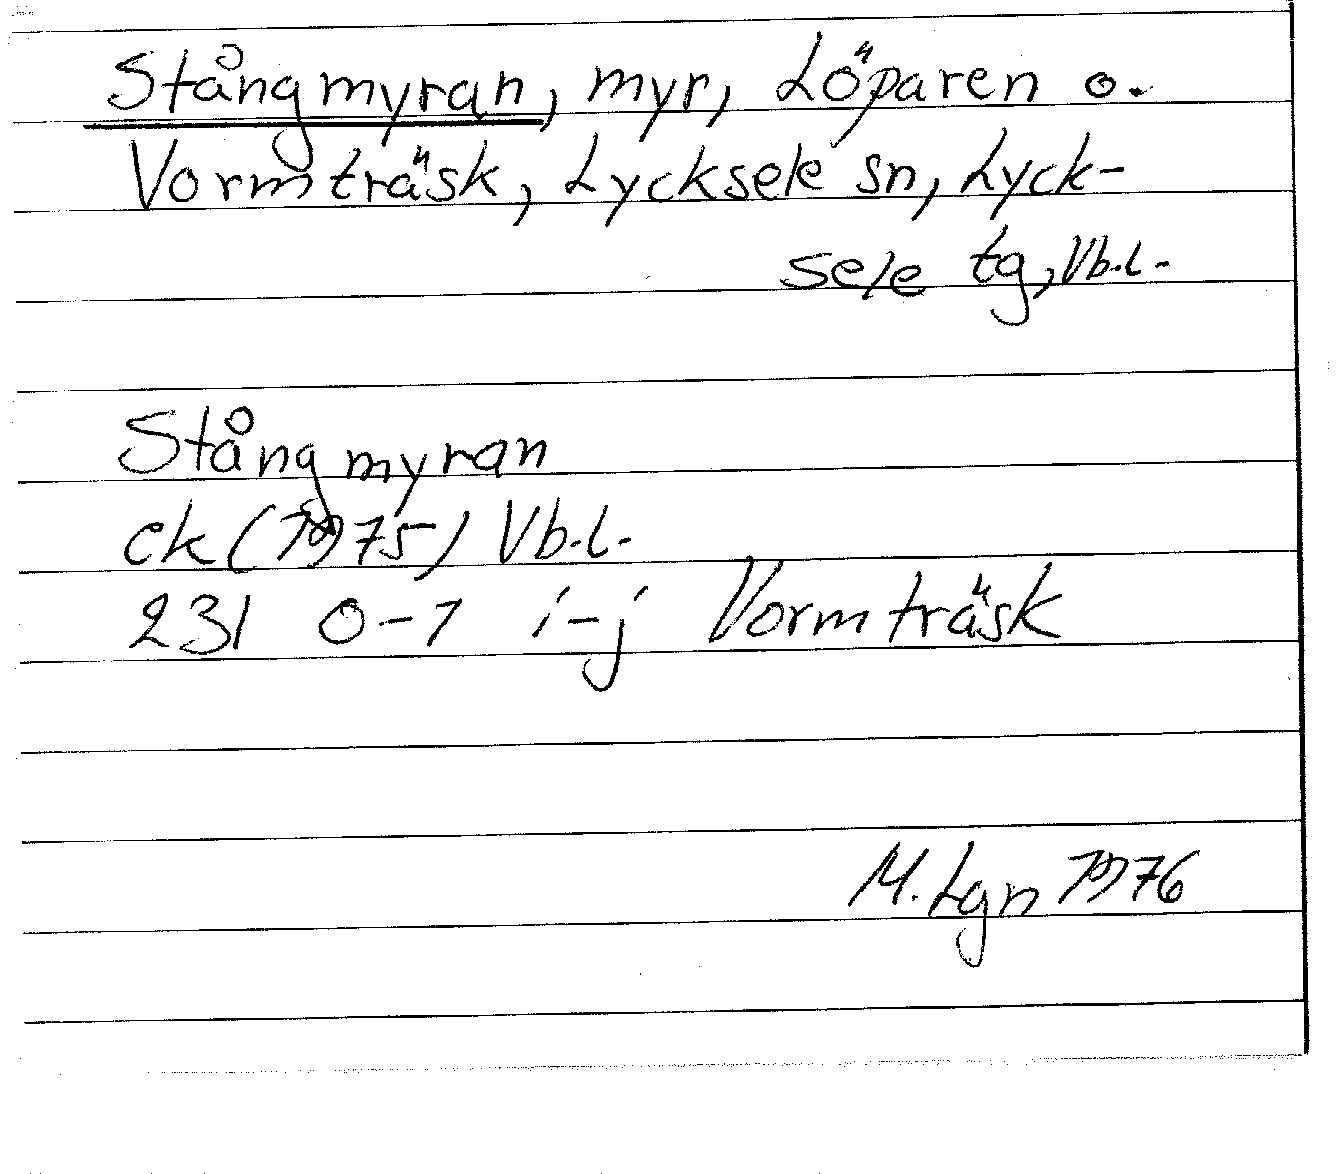 Stångmyran, myr, Löparen o.
Vormträsk, Lycksele sn, Lyck-
sele tg, Vb.l.
Stångmyran
ek (1975) Vb.l.
231 0-1 i-j Vormträsk
M. Lgn 1976